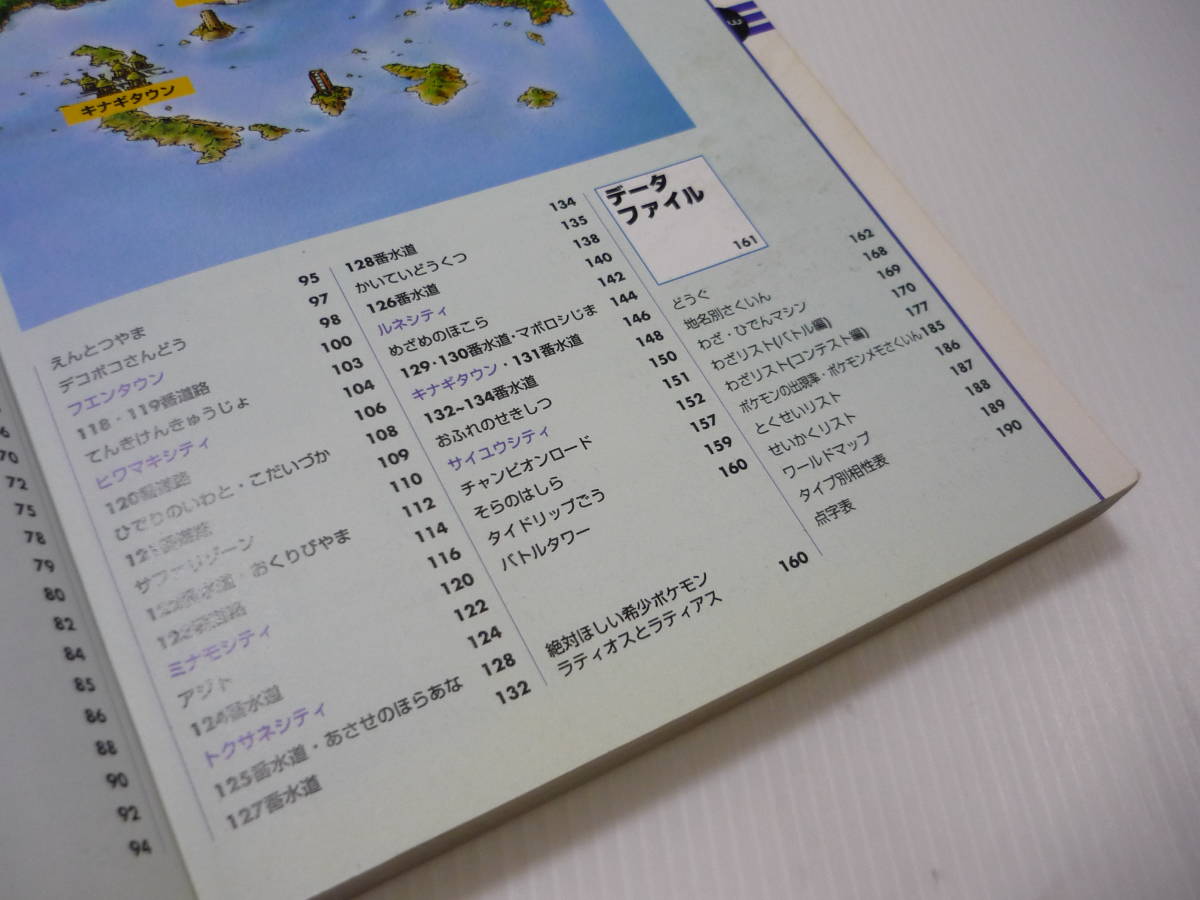 キナギタウン
70
72
75
78
79
80
82
84
85
86
88
90
92
94
えんとつやま 95
デコボコさんどう 97
フエンタウン 98
118・119番道路 100
てんきけんきゅうじょ 103
ヒワマキシティ 104
120番道路 106
ひでりのいわと・こだいづか 108
121番道路 109
サファリゾーン 110
122番水道・おくりびやま 112
123番道路 114
ミナモシティ 116
アジト 120
124番水道 122
トクサネシティ 124
125番水道・あさせのほらあな 128
127番水道 132
128番水道 134
かいていどうくつ 135
126番水道 138
ルネシティ 140
めざめのほこら 142
129・130番水道・マボロシじま 144
キナギタウン・131番水道 146
132~134番水道 148
おふれのせきしつ 150
サイユウシティ 151
チャンピオンロード 152
そらのはしら 157
タイドリップごう 159
バトルタワー 160
絶対ほしい希少ポケモン
ラティオスとラティアス 160
データ
ファイル
161
どうぐ 162
地名別さくいん 168
わざ・ひでんマシン 169
わざリスト(バトル編) 170
わざリスト(コンテスト編) 177
ポケモンの出現率・ポケモンメモさくいん 185
とくせいリスト 186
せいかくリスト 187
ワールドマップ 188
タイプ別相性表 189
点字表 190
3